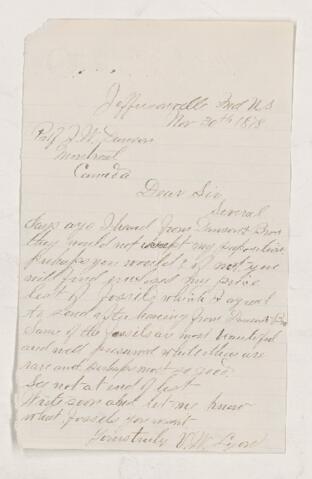 Jeffersonville Ind U.S
Nov 30th 1878
Prof J. W. Dawson
Montreal
Canada
Dear Sir,
Several
days ago I heard from Dawson & Bros
they would not accept my
perhaps you would & if not you
will find enclosed my price
list of fossils which I agreed
to send after hearing from Dawson & Bro
Some of the fossils are most beautiful
and well preserved while others are
rare and perhaps not so good.
See not at end of list
Write soon and let me know
what fossils you want
Yours truly V. W. Lyon